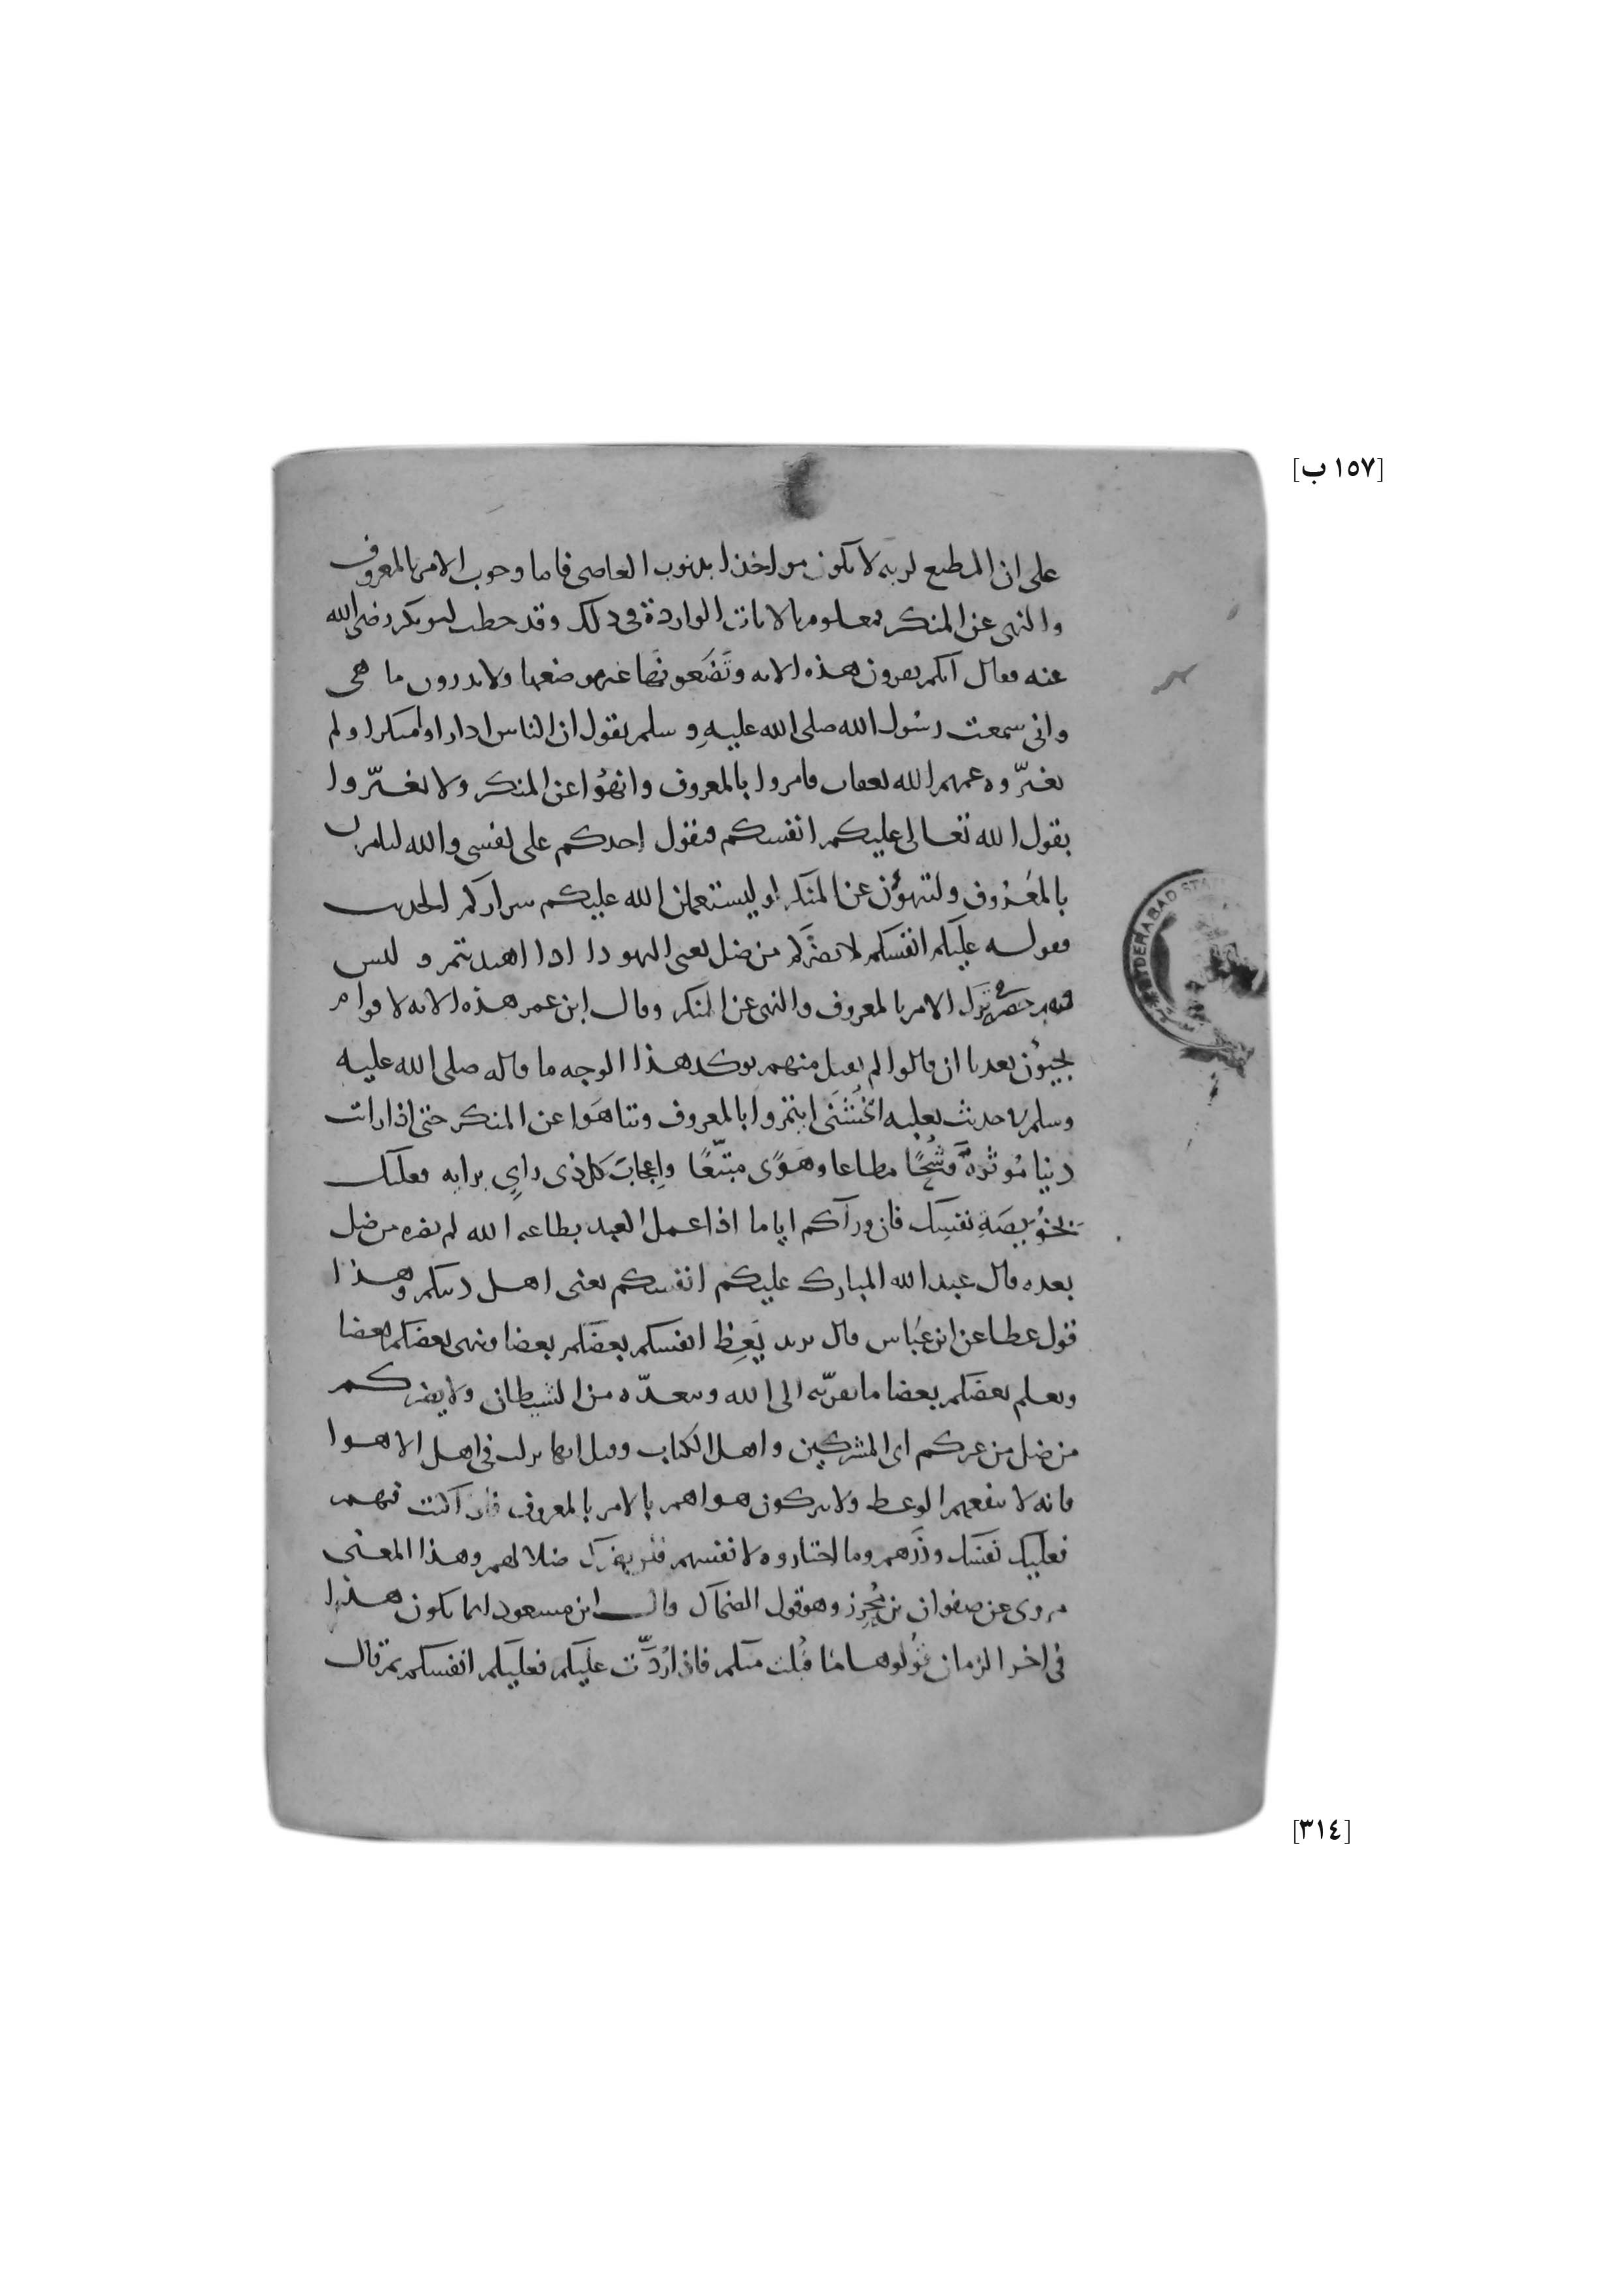 [١٥٧ ب]
على ان المطيع لربه لا يكون مواخذا بذنوب العاصى فاما وجوب الامر بالمعروف
والنهى عن المنكر فمعلوم بالايات الواردة فى ذلك وقد خطب ابو بكر رضى الله
عنه فقال انكم تقرون هذه الايه وتَضَعونَها غير موضعها ولا تدرون ما هى
وانى سمعت رسُول الله صلى الله عليهِ وسلم يقول ان الناس اذا راوا منكرا ولم
يغيّروه عمهم الله بعقاب فامروا بالمعروف وانهَوُا عن المنكر ولا تغترّوا
بقول الله تعالى عليكم انفسكم فيقول احدكم على نفسى والله لتامرن
بالمَعْرُوف ولتنهوُن عن المنكر او ليستعملن الله عليكم شراركم الحديث
فقوله عليكم انفسكم لا يضرُّكم من ضل يعنى اليهود اذا اهتديتم وليس
فيه رخصة فى ترك الامر بالمعروف والنهى عن المنكر وقال ابن عمر هذه الايه لاقوام
يجيؤن بعدنا ان قالوا لم يقبل منهم يوكد هذا الوجه ما قاله صلى الله عليه
وسلم لا حديث ثعلبه الخُشَنَى ايتمروا بالمعروف وتناهَوا عن المنكر حتى اذا رات
دنيا مُوثرةً وشُحًّا مطاعا وهَوًى متبّعًا واِعجابَ كل ذى رايٍ برايه فعليك
بخُوَيصَةِ نفسِك فان ورآكم اياما اذا عمل العبد بطاعه الله لم يضره من ضل
بعده قال عبد الله المبارك عليكم انفسكم يعنى اهل دينكم وهذا
قول عطا عن ابن عبَاس قال يريد يَعِظ انفسكم بعضكم بعضا وينهى بعضكم بعضا
ويعلم بعضكم بعضا ما يقرّبه الى الله ويبعدّه من الشيطان ولا يضركم
من ضل من غيركم اى المشركين واهل الكتاب وقيل انها نزلت فى اهل الاهوا
فانه لا ينفعهم الوعظ ولا يتركون هواهم بالامر بالمعروف فاذا كنت فيهم
فعليك نفسَك وذَرهم وما اختاروه لانفسهم فلن يضرك ضلالهم وهذا المعنى
مروى عن صفوان بن مُحرِز وهو قول الضحاك وقال ابن مسعود انما يكون هذا
فى اخر الزمان قُولوها ما قُبلت منكم فاذا رُدَّت عليكم فعليكم انفسكم ثم قال
[٣١٤]